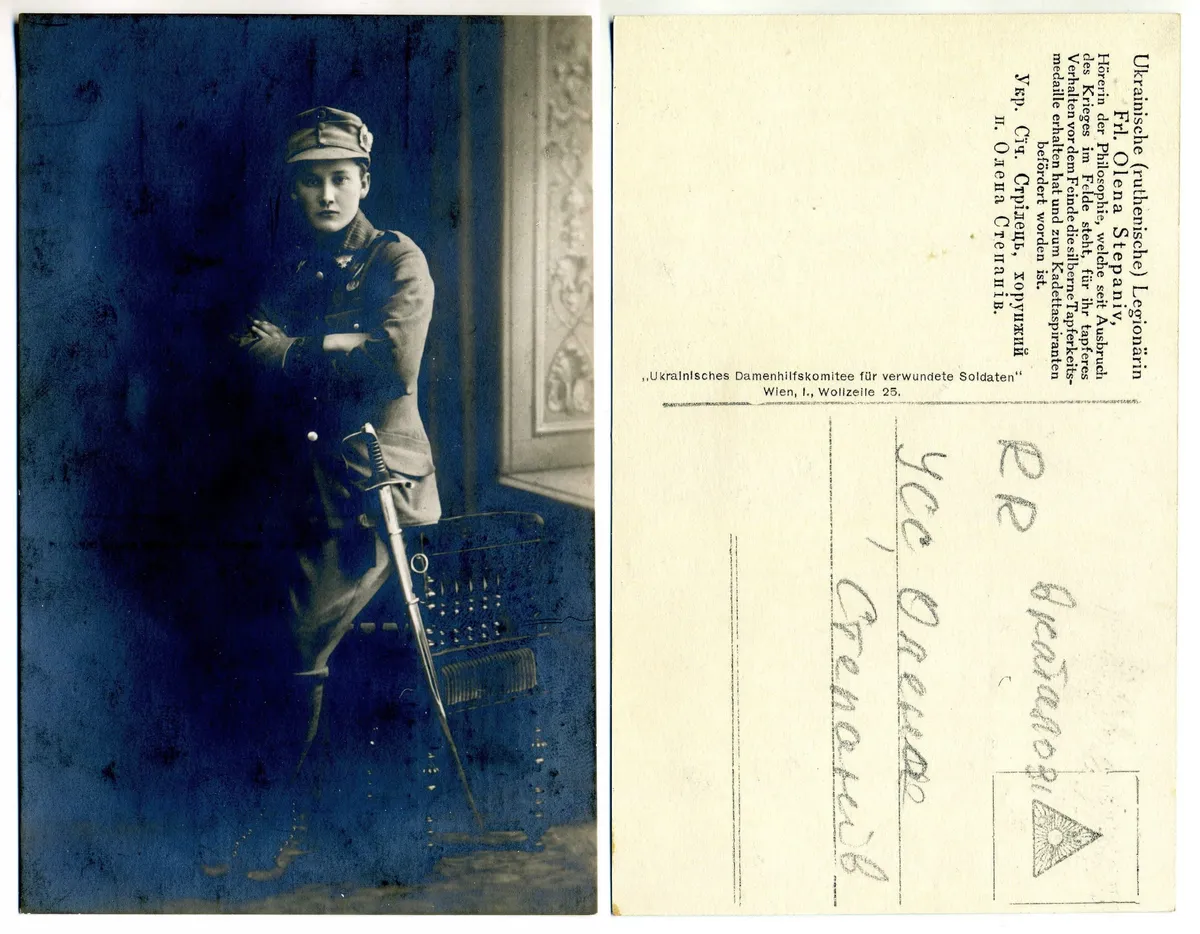 Ukrainische (ruthenische) Legionärin
Frl. Olena Stepaniv,
Hörerin der Philosophie, welche seit Ausbruch
des Krieges im Felde steht, für ihr tapferes
Verhalten vor dem Feinde die silberne Tapferkeits-
medaille erhalten hat und zum Kadettaspiranten
befördert worden ist.
Укр. Січ. Стрілець, хорунжий
п. Олена Степанів.
„Ukrainisches Damenhilfskomitee für verwundete Soldaten“
Wien, I., Wollzeile 25.
RR
УСС Олена
Степанів